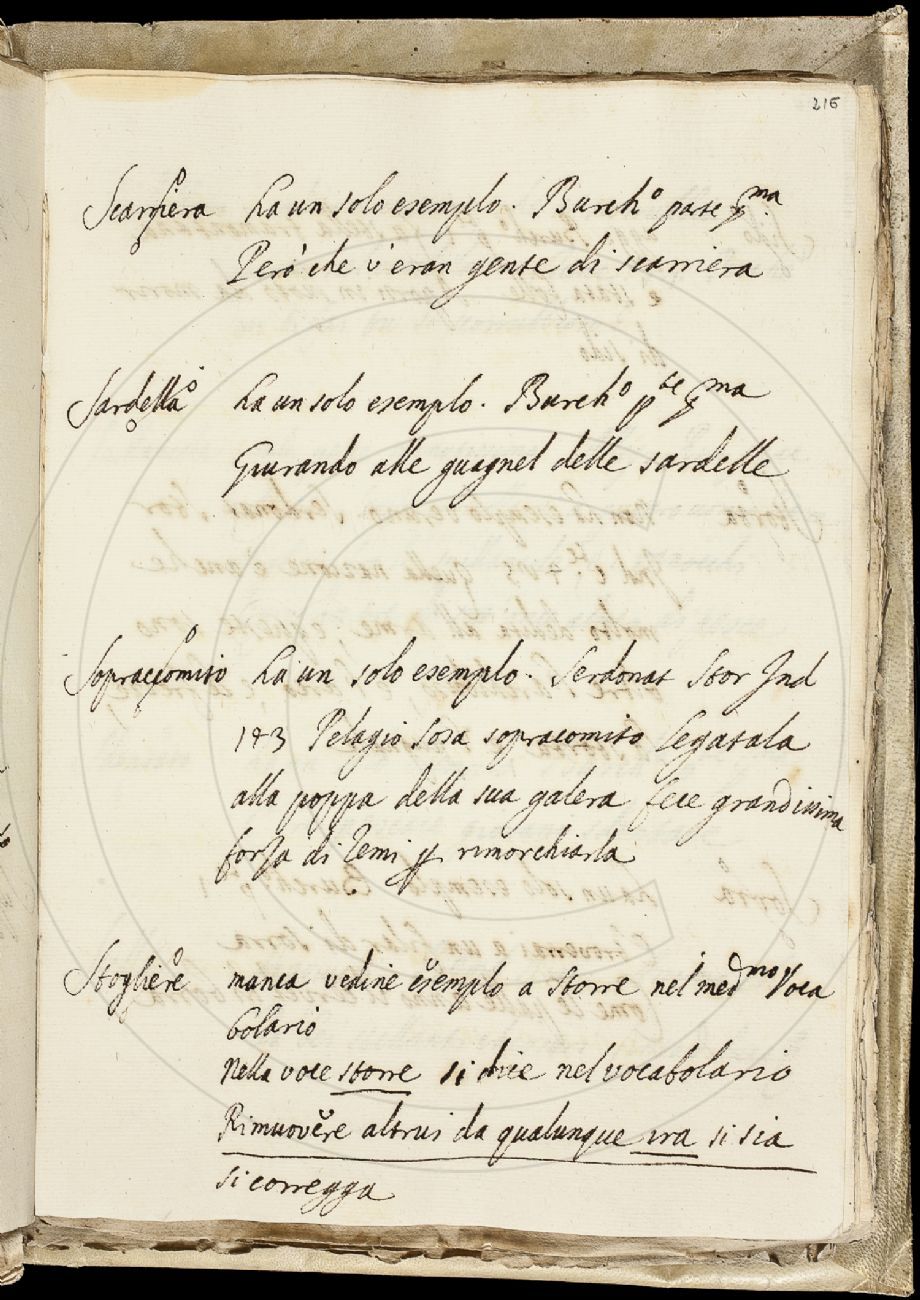 216
Scarriera ha un solo esemplo. Burch.o parte p.ma
Però che v'eran gente di scarriera
Sardella ha un solo esemplo. Burch.o p.te p.ma
Giurando alle guagnel delle sardelle
Sopraccomito ha un solo esemplo. Serdonat Stor Ind
Pelagio Sosa sopracomito legatala
alla poppa della sua galera fece grandissima
forza di remi p rimorchiarla
Stogliere manca vedine esemplo a Storre nel med.mo Voca
bolario
Nella voce storre si dice nel vocabolario
Rimuovere altrui da qualunque ira si sia
si corregga